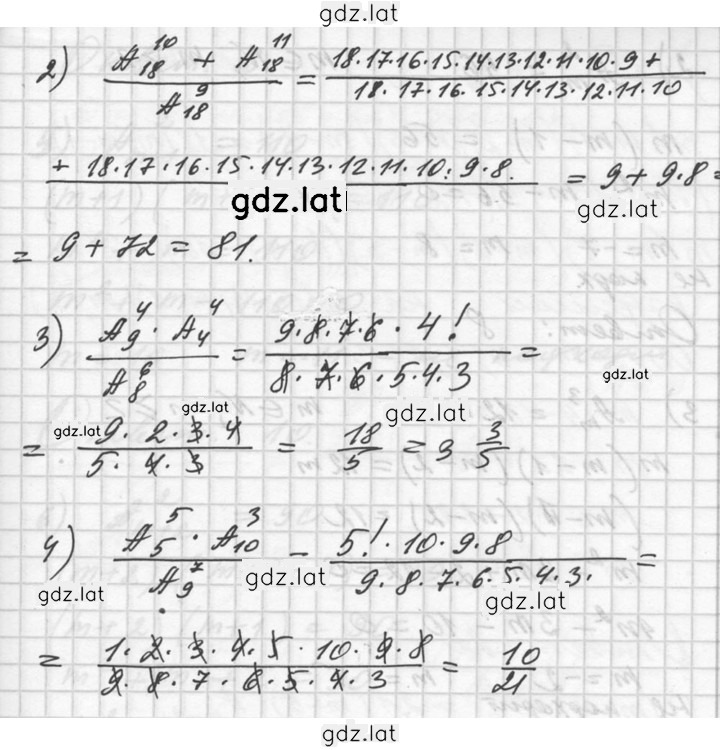 gdz.lat
2) (A_18^10 + A_18^11) / A_18^9 = (18·17·16·15·14·13·12·11·10·9 +) / (18·17·16·15·14·13·12·11·10)
+ 18·17·16·15·14·13·12·11·10·9·8. = 9 + 9·8 =
gdz.lat gdz.lat
= 9 + 72 = 81.
3) (A_9^4 · A_4^4) / A_8^6 = (9·8·7·6 · 4!) / (8·7·6·5·4·3) =
gdz.lat
gdz.lat gdz.lat gdz.lat
= (9·2·3·4) / (5·4·3) = 18/5 = 3 3/5
4) (A_5^5 · A_10^3) / A_9^7 - (5!·10·9·8) / (9·8·7·6·5·4·3.) =
gdz.lat gdz.lat gdz.lat
= (1·2·3·4·5·10·9·8) / (9·8·7·6·5·4·3) = 10/21
gdz.lat